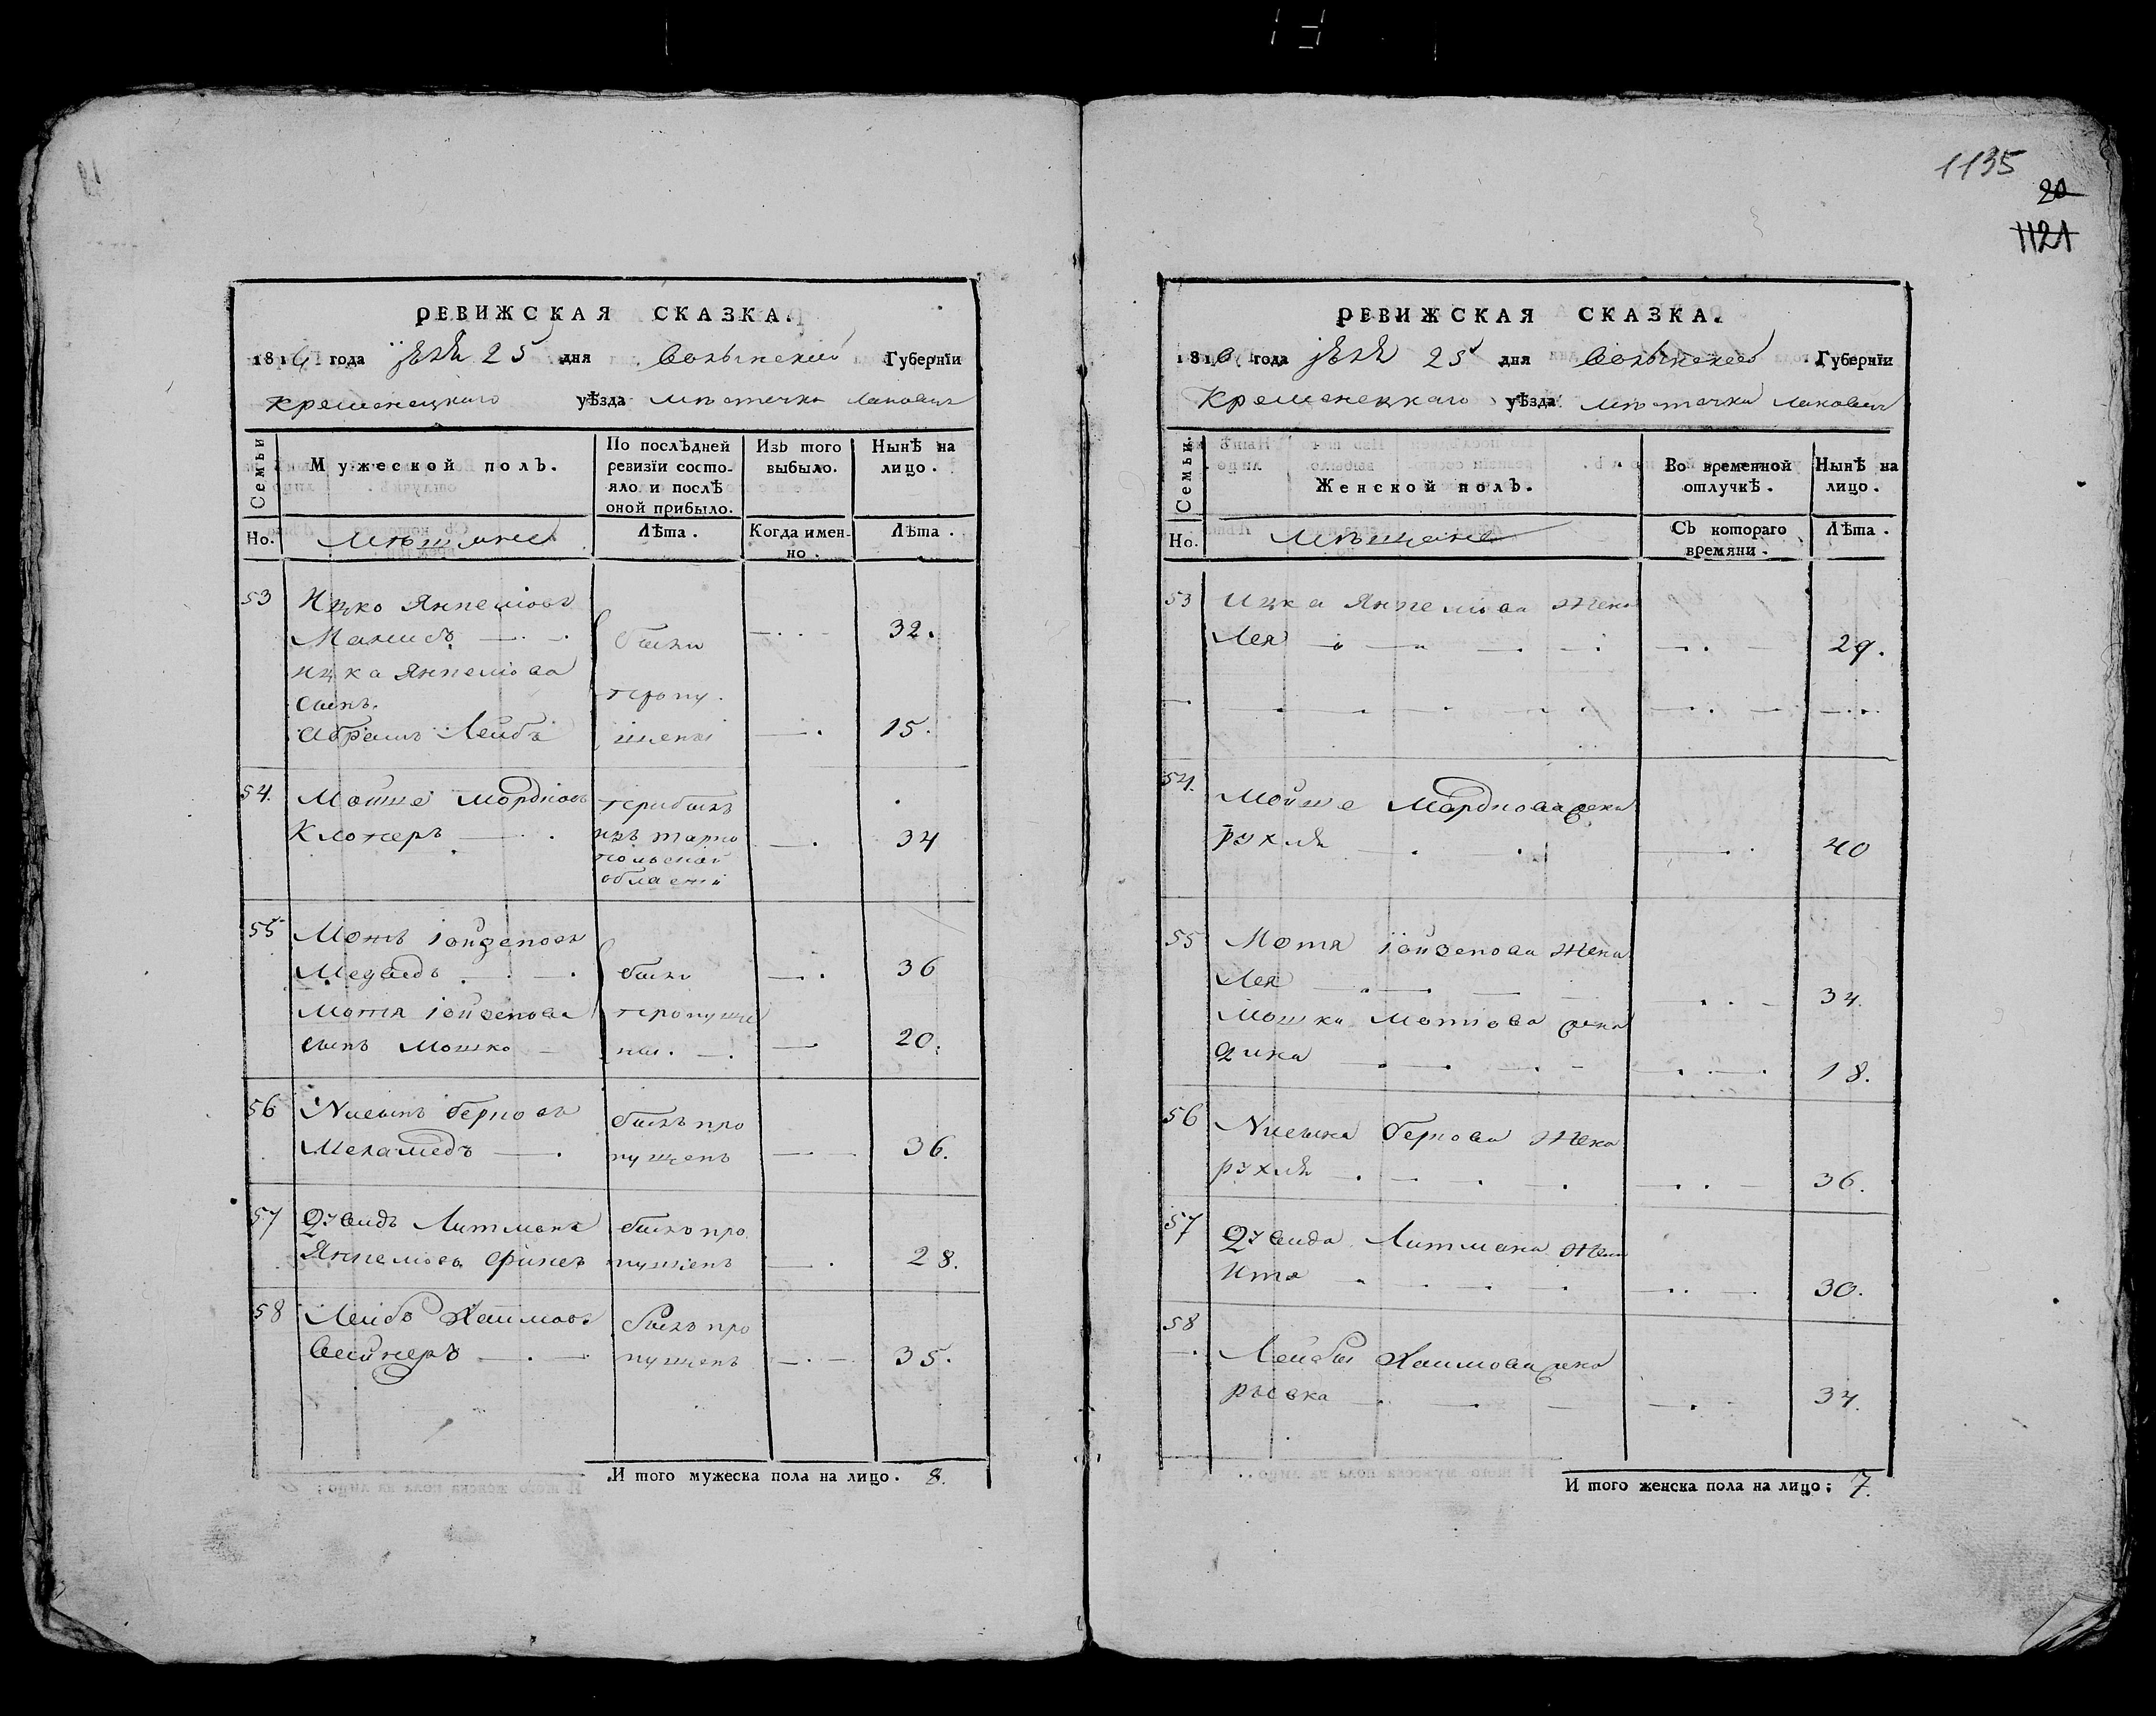 1135
20
1121
РЕВИЖСКАЯ СКАЗКА.
1816 года Іюля 25 дня Волынской Губернїи
Кременецкаго уѣзда мѣстечка Лановецъ
Семьи
Мужеской полъ.
По послѣдней ревизїи состояло и послѣ оной прибыло.
Изъ того выбыло.
Нынѣ на лицо.
Но.
Мѣщане
Лѣта.
Когда именно.
Лѣта.
53 Ицко Янкелювъ
Малисъ были 32.
ицка Янкелюва
сынъ. пропу
Абрамъ Лейбъ щены 15.
54. Мошко Мордковъ прибылъ
Клоперъ изъ Тарно 34
польской
области
55 Мотъ Іойзеповъ
Медведъ были 36
Мотя Іойзепова пропуще
сынъ Мошко ны. 20.
56 Nисынъ Берковъ былъ про
Меламедъ пущенъ 36.
57 Дувидъ Литманъ былъ про
Янкелювъ Финеръ пущенъ 28.
58 Лейбъ Хаимовъ былъ про
Вейнеръ пущенъ 35.
И того мужеска пола на лицо. 8.
РЕВИЖСКАЯ СКАЗКА.
1816 года Іюля 25 дня Волынской Губернїи
Кременецкаго уѣзда мѣстечка Лановецъ
Семьи.
Женской полъ.
Во временной отлучкѣ.
Нынѣ на лицо.
Но.
Мѣщане
Съ котораго времяни.
Лѣта.
53 Ицка Янкелюва жена
Лея 29.
54. Мойше Мордкова жена
рухля 40
55 Мотя Іойзепова жена
Лея 34.
Мошка Мотіова жена
Дина 18.
56 Nисына Беркова жена
рухля 36.
57 Дувида Литмана жена
Ита 30.
58
Лейбы Хаимова жена
рывка 34.
И того женска пола на лицо; 7.